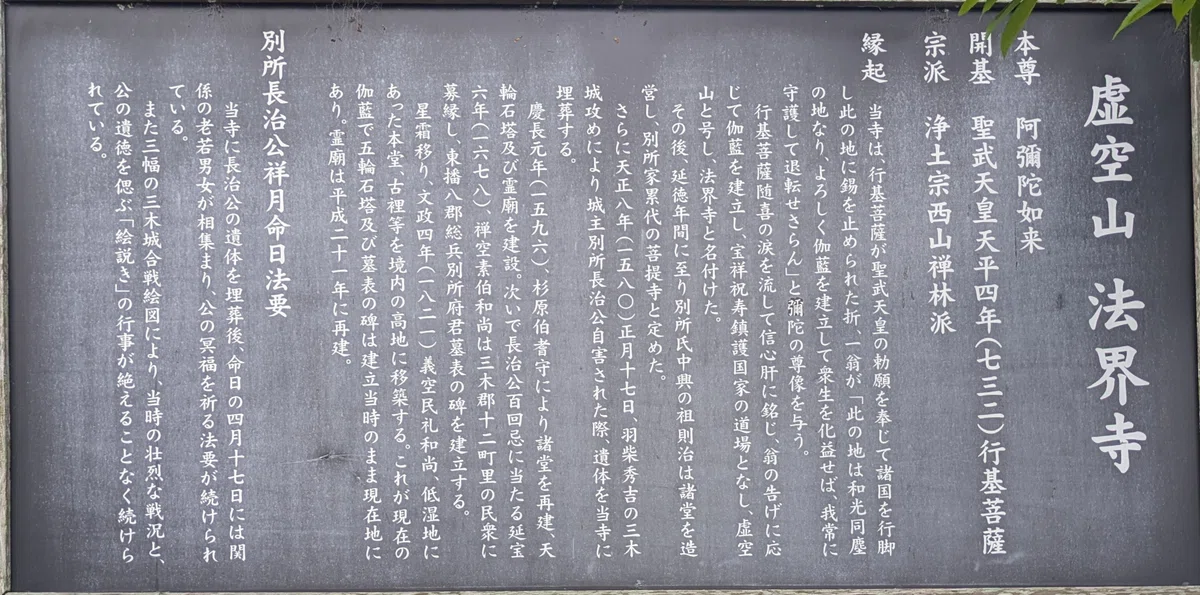 虚空山　法界寺
本尊　阿彌陀如来
開基　聖武天皇天平四年（七三二）行基菩薩
宗派　浄土宗西山禅林派
縁起
当寺は、行基菩薩が聖武天皇の勅願を奉じて諸国を行脚
し此の地に錫を止められた折、一翁が「此の地は和光同塵
の地なり、よろしく伽藍を建立して衆生を化益せば、我常に
守護して退転せさらん」と彌陀の尊像を与う。
行基菩薩随喜の涙を流して信心肝に銘じ、翁の告げに応
じて伽藍を建立し、宝祥祝寿鎮護国家の道場となし、虚空
山と号し、法界寺と名付けた。
その後、延徳年間に至り別所氏中興の祖則治は諸堂を造
営し、別所家累代の菩提寺と定めた。
さらに天正八年（一五八〇）正月十七日、羽柴秀吉の三木
城攻めにより城主別所長治公自害された際、遺体を当寺に
埋葬する。
慶長元年（一五九六）、杉原伯耆守により諸堂を再建、天
輪石塔及び霊廟を建設。次いで長治公百回忌に当たる延宝
六年（一六七八）、禅空素伯和尚は三木郡十二町里の民衆に
募縁し、東播八郡総兵別所府君墓表の碑を建立する。
星霜移り、文政四年（一八二一）義空民礼和尚、低湿地に
あった本堂、古裡等を境内の高地に移築する。これが現在の
伽藍で五輪石塔及び墓表の碑は建立当時のまま現在地に
あり。霊廟は平成二十一年に再建。
別所長治公祥月命日法要
当寺に長治公の遺体を埋葬後、命日の四月十七日には関
係の老若男女が相集まり、公の冥福を祈る法要が続けられ
ている。
また三幅の三木城合戦絵図により、当時の壮烈な戦況と、
公の遺徳を偲ぶ「絵説き」の行事が絶えることなく続けら
れている。